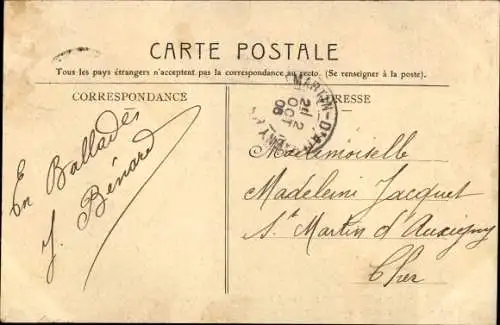 CARTE POSTALE
Tous les pays étrangers n'acceptent pas la correspondance au recto. (Se renseigner à la poste).
CORRESPONDANCE
RESSE
MARTIN-D'AU
2
OCT
06
En Ballades
J. Bénard
Mademoiselle
Madeleine Jacquet
St Martin d'Auxigny
Cher